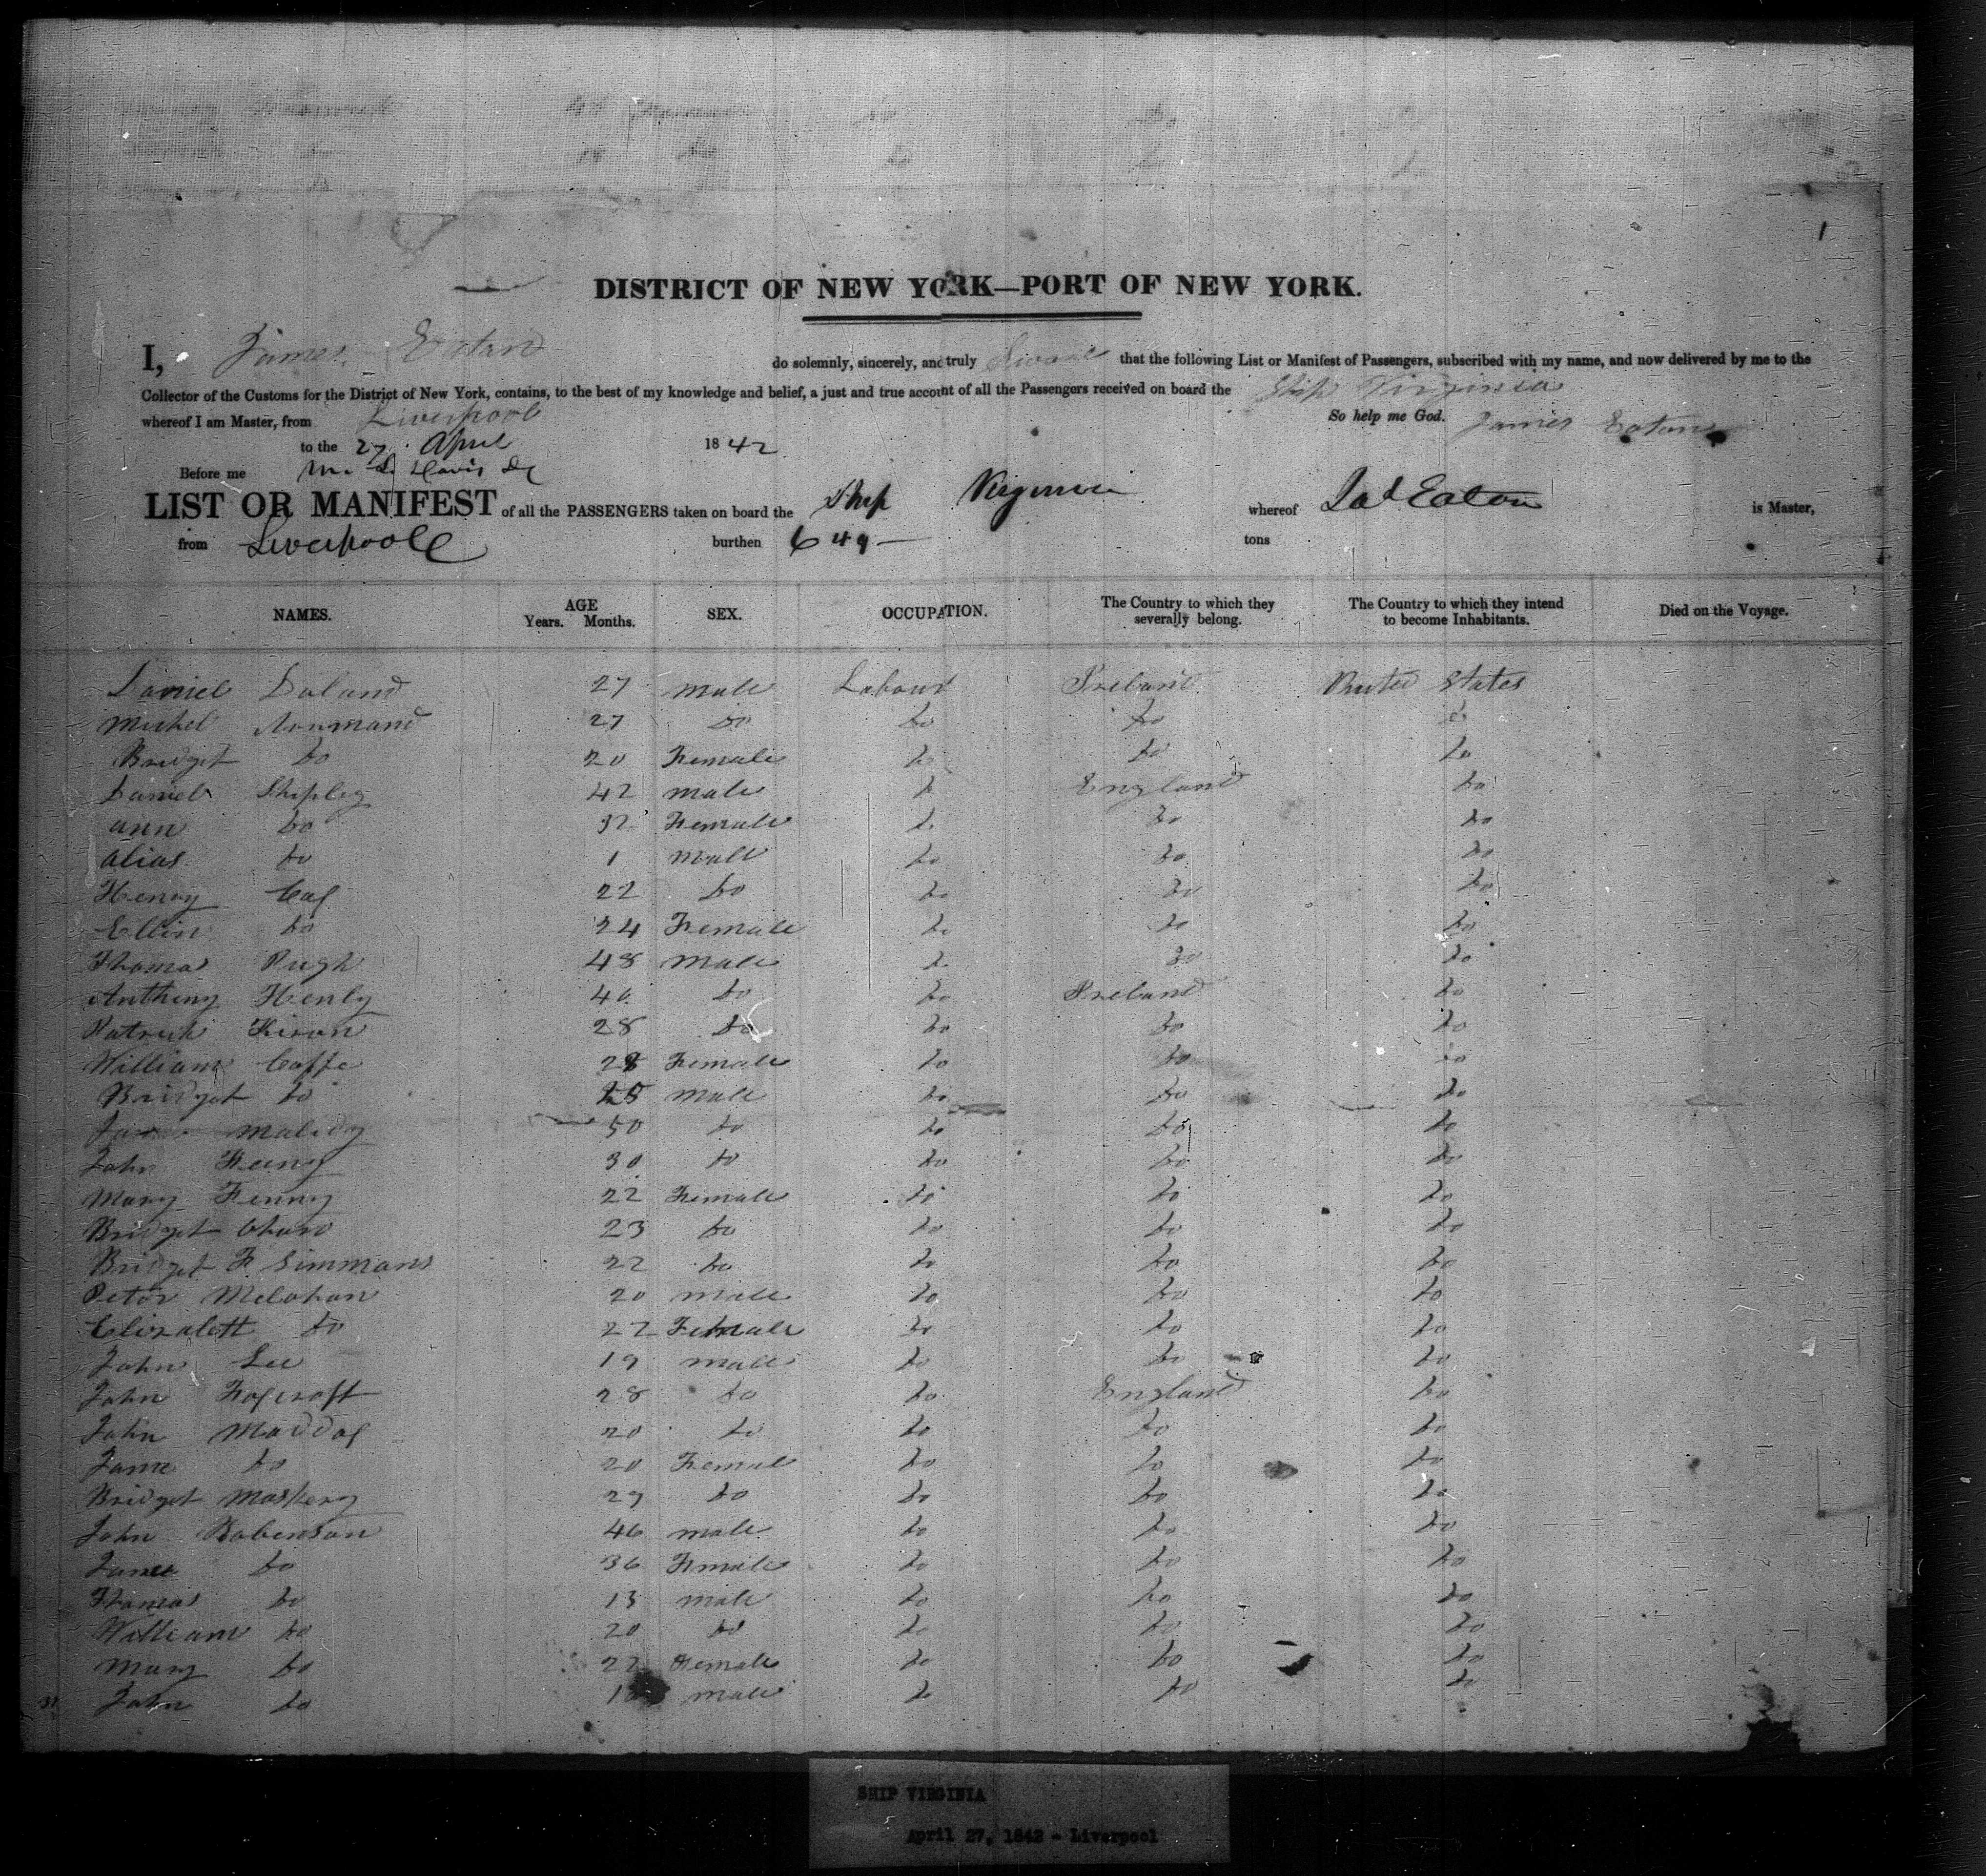 DISTRICT OF NEW YORK—PORT OF NEW YORK.
I, James Eatan do solemnly, sincerely, and truly Swear that the following List or Manifest of Passengers, subscribed with my name, and now delivered by me to the
Collector of the Customs for the District of New York, contains, to the best of my knowledge and belief, a just and true account of all the Passengers received on board the Ship Virginia
whereof I am Master, from Liverpool So help me God. James Eatan
to the 27 April 1842
Before me
LIST OR MANIFEST of all the PASSENGERS taken on board the Ship Virginia whereof Jas Eaton is Master,
from Liverpool burthen 649 tons
NAMES. AGE Years. Months. SEX. OCCUPATION. The Country to which they severally belong. The Country to which they intend to become Inhabitants. Died on the Voyage.
Daniel Doland 27 male Labour Ireland United States
Michel 27 do do do do
Bridget do 20 Female do do do
Daniel Shipley 42 male do England do
ann do 32 Female do do do
alias do 1 male do do do
Henry Cox 22 do do do do
Ellin do 24 Female do do do
Thomas Pugh 48 male do do do
Anthony Henly 46 do do Ireland do
Patrick Kiron 28 do do do do
William Caffe 28 Female do do do
Bridget do male do do do
Malidy 50 do do do do
John Feeny 30 do do do do
Mary Fenny 22 Female do do do
Bridget 23 do do do do
Bridget F Simmons 22 do do do do
Peter Melohan 20 male do do do
Elizabett do 22 Female do do do
John Lee 19 male do do do
John Foxcroft 28 do do England do
John Maddox 20 do do do do
Jane do 20 Female do do do
Bridget 29 do do do do
John Robenson 46 male do do do
James do 36 Female do do do
Thomas do 13 male do do do
William do 20 do do do do
Mary do 22 Female do do do
31 John do male do do do
SHIP VIRGINIA
April 27, 1842 - Liverpool